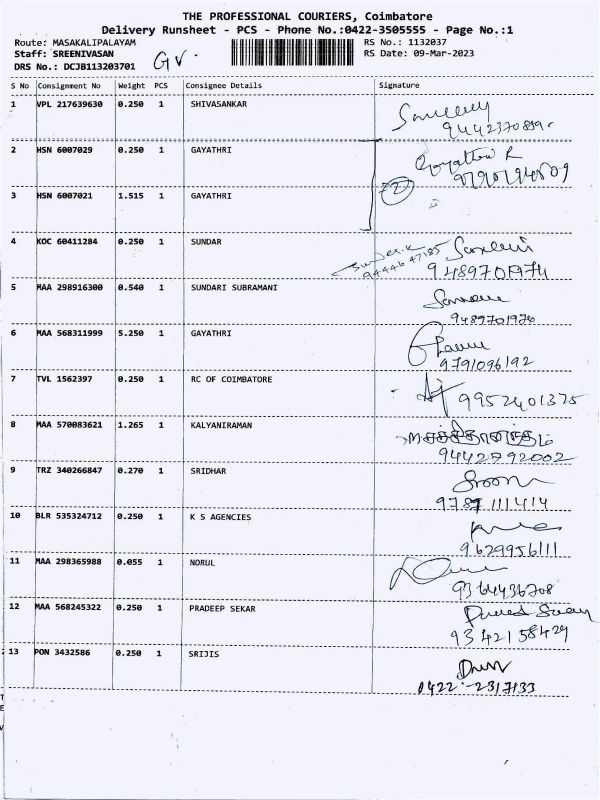 THE PROFESSIONAL COURIERS, Coimbatore
Delivery Runsheet - PCS - Phone No.:0422-3505555 - Page No.:1
Route: MASAKALIPALAYAM RS No.: 1132037
Staff: SREENIVASAN RS Date: 09-Mar-2023
DRS No.: DCJB113203701 GV.
S No Consignment No Weight PCS Consignee Details Signature
1 VPL 217639630 0.250 1 SHIVASANKAR
2 HSN 6007029 0.250 1 GAYATHRI Gayathri R
3 HSN 6007021 1.515 1 GAYATHRI
4 KOC 60411284 0.250 1 SUNDAR Sunder.k
9444647185
9489701974
5 MAA 298916300 0.540 1 SUNDARI SUBRAMANI
9489701974
6 MAA 568311999 5.250 1 GAYATHRI
9791096192
7 TVL 1562397 0.250 1 RC OF COIMBATORE 9952401375
8 MAA 570083621 1.265 1 KALYANIRAMAN
9442792002
9 TRZ 340266847 0.270 1 SRIDHAR
9787111414
10 BLR 535324712 0.250 1 K S AGENCIES
9629956111
11 MAA 298365988 0.055 1 NORUL
9364436708
12 MAA 568245322 0.250 1 PRADEEP SEKAR
9342158429
13 PON 3432586 0.250 1 SRIJIS
0422-2317133